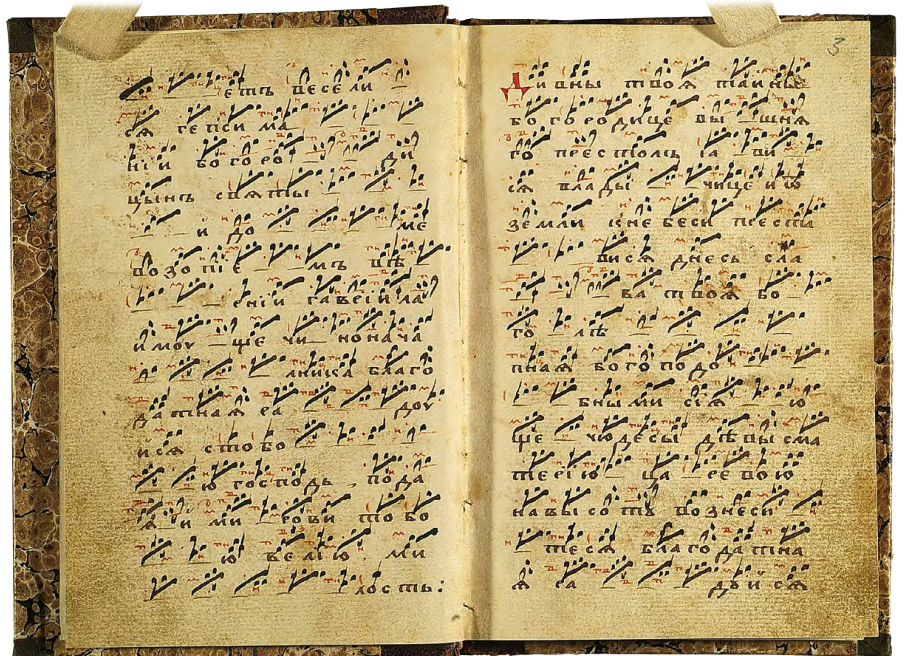 етъ весели
ся гепси ма
нїи богоро ди
цынъ святы
и до ме
возопїе мъ въ
енїи гаврїила
имоу ще чи нонача
лника благо
датная ра доу
ися стобо
ю господь пода
я и ми рови то бо
ю велїю ми
лость:
3
Дивны твоя таины
богородице вы шня
го престолъıа ви
ся влады чице и ѿ
земли кнебеси преста
вися днесь сла
ва твоя бо
го лѣ
пная богоподо
бными сıя ю
ще чюдесы дѣвысма
терїю ца ревою
навысотъ вознеси
теся благодатна
я ра доися